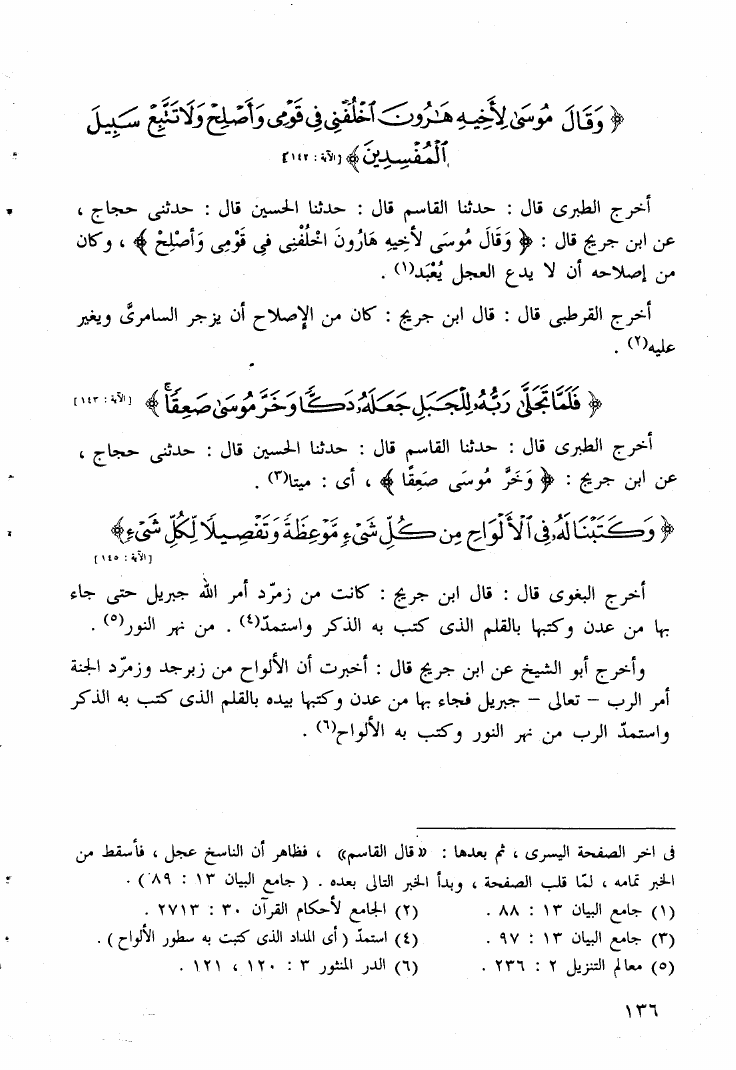 ﴿ وَقَالَ مُوسَىٰ لِأَخِيهِ هَـٰرُونَ ٱخْلُفْنِى فِى قَوْمِى وَأَصْلِحْ وَلَا تَتَّبِعْ سَبِيلَ
ٱلْمُفْسِدِينَ ﴾ [الآية : ١٤٢]
أخرج الطبرى قال : حدثنا القاسم قال : حدثنا الحسين قال : حدثنى حجاج ،
عن ابن جريج قال : ﴿ وَقَالَ مُوسَى لأخِيهِ هَارُونَ اخْلُفْنِى فِى قَوْمِى وَأصْلِحْ ﴾ ، وكان
من إصلاحه أن لا يدع العجل يُعْبَد(١) .
أخرج القرطبى قال : قال ابن جريج : كان من الإصلاح أن يزجر السامرىَّ ويغير
عليه(٢) .
﴿ فَلَمَّا تَجَلَّىٰ رَبُّهُۥ لِلْجَبَلِ جَعَلَهُۥ دَكًّا وَخَرَّ مُوسَىٰ صَعِقًا ۚ ﴾ [الآية : ١٤٣]
أخرج الطبرى قال : حدثنا القاسم قال : حدثنا الحسين قال : حدثنى حجاج ،
عن ابن جريج : ﴿ وَخَرَّ مُوسَى صَعِقًا ﴾ ، أى : ميتا(٣) .
﴿ وَكَتَبْنَا لَهُۥ فِى ٱلْأَلْوَاحِ مِن كُلِّ شَىْءٍ مَّوْعِظَةً وَتَفْصِيلًا لِّكُلِّ شَىْءٍ ﴾
[الآية : ١٤٥]
أخرج البغوى قال : قال ابن جريج : كانت من زمرّد أمر الله جبريل حتى جاء
بها من عدن وكتبها بالقلم الذى كتب به الذكر واستمدّ(٤) . من نهر النور(٥) .
وأخرج أبو الشيخ عن ابن جريج قال : أخبرت أن الألواح من زبرجد وزمرّد الجنة
أمر الرب – تعالى – جبريل فجاء بها من عدن وكتبها بيده بالقلم الذى كتب به الذكر
واستمدّ الرب من نهر النور وكتب به الألواح(٦) .
فى اخر الصفحة اليسرى ، ثم بعدها : «قال القاسم» ، فظاهر أن الناسخ عجل ، فأسقط من
الخبر تمامه ، لمّا قلب الصفحة ، وبدأ الخبر التالى بعده . ( جامع البيان ١٣ : ٨٩ ) .
(١) جامع البيان ١٣ : ٨٨ . (٢) الجامع لأحكام القرآن ٣٠ : ٢٧١٣ .
(٣) جامع البيان ١٣ : ٩٧ . (٤) استمدّ ( أى المداد الذى كتبت به سطور الألواح ) .
(٥) معالم التنزيل ٢ : ٢٣٦ . (٦) الدر المنثور ٣ : ١٢٠ ، ١٢١ .
١٣٦